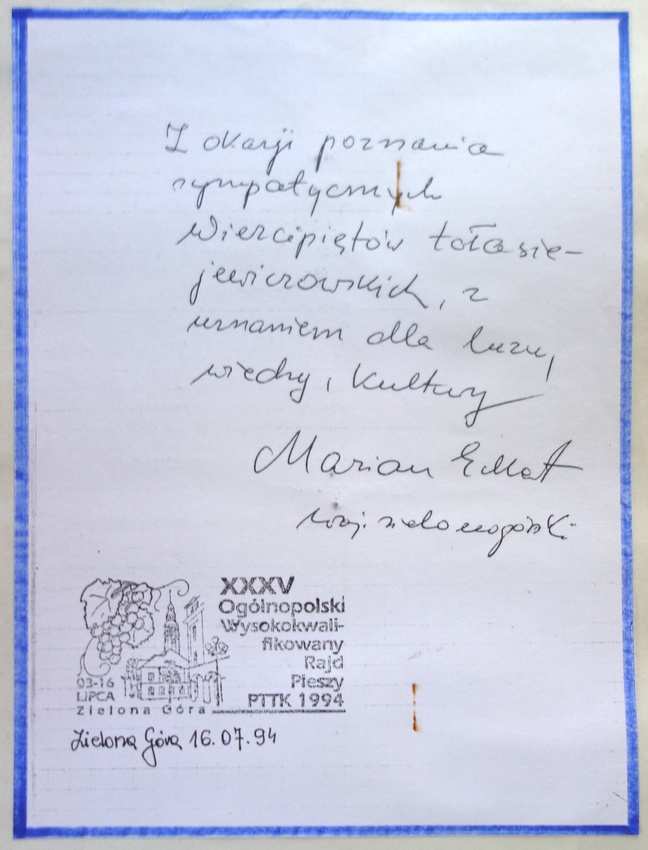 Z okazji poznania
sympatycznych
Wiercipiętów tołasie-
jewiczowskich, z
uznaniem dla luzu,
wiedzy i kultury
Marian Eckert
woj. zielonogórski
XXXV
Ogólnopolski
Wysokokwali-
fikowany
Rajd
Pieszy
PTTK 1994
03-16
LIPCA
Zielona Góra
Zielona Góra 16.07.94